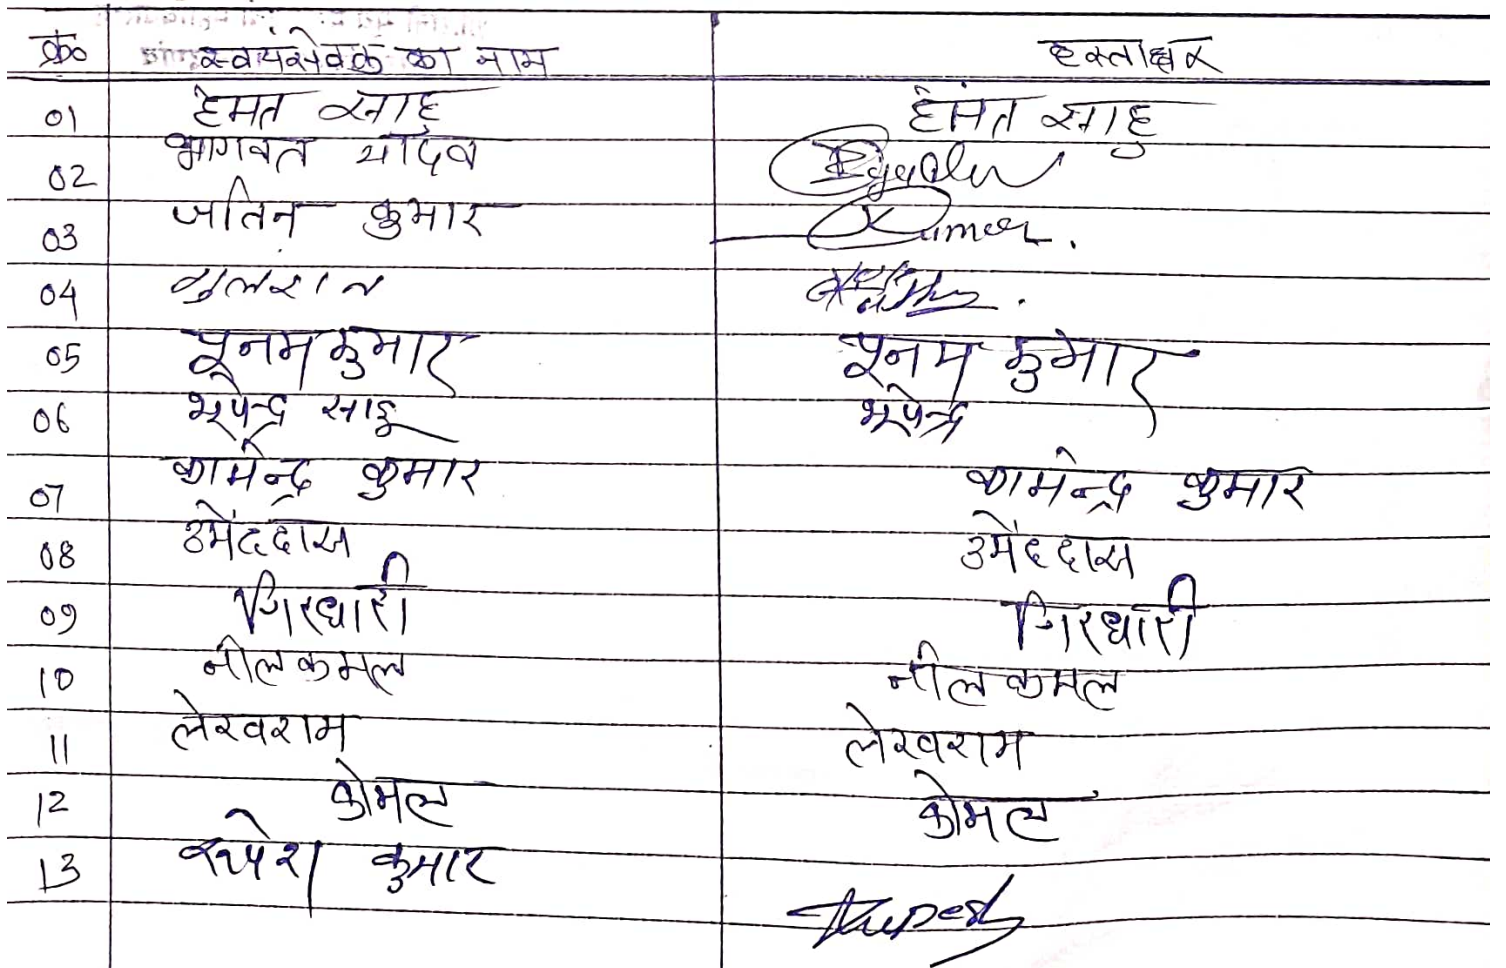 क्र० स्वयंसेवक का नाम हस्ताक्षर
01 हेमंत साहू हेमंत साहू
02 भागवत यादव
03 जतिन कुमार Kumar.
04 गुलशन
05 पूनम कुमार पूनम कुमार
06 भूपेन्द्र साहू भूपेन्द्र
07 कामेन्द्र कुमार कामेन्द्र कुमार
08 उमेंददास उमेंददास
09 गिरधारी गिरधारी
10 नीलकमल नीलकमल
11 लेखराम लेखराम
12 कोमल कोमल
13 रुपेश कुमार Rupesh